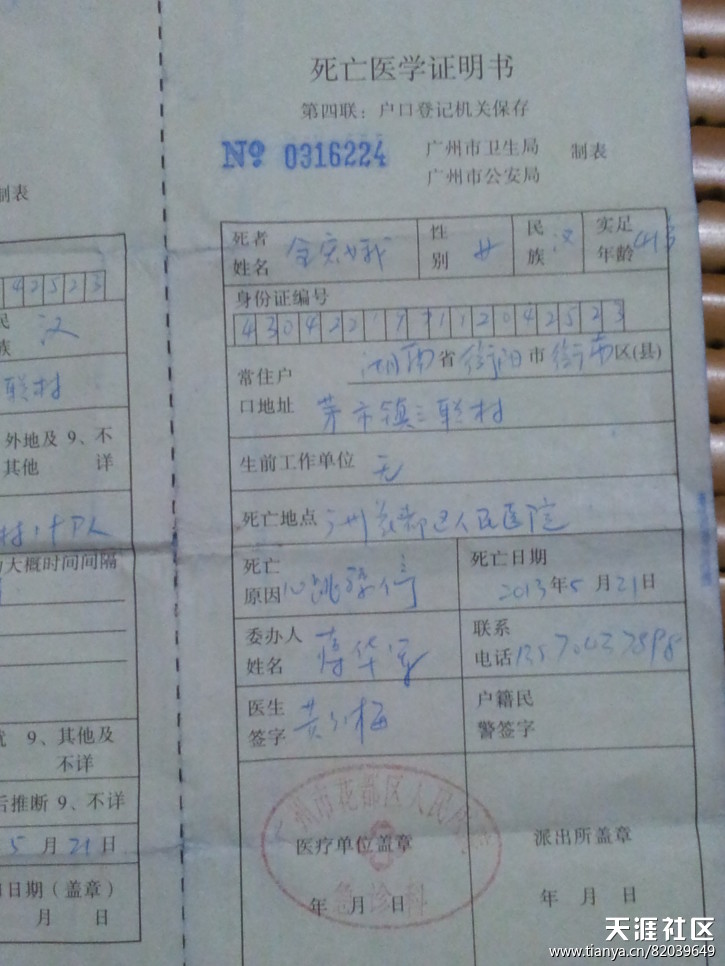 死亡医学证明书
第四联：户口登记机关保存
№ 0316224
广州市卫生局
广州市公安局
制表
死者
姓名
性
别 女
民
族 汉
实足
年龄
身份证编号
常住户
口地址
湖南省衡阳市衡南区(县)
茅市镇三联村
生前工作单位 无
死亡地点 广州花都区人民医院
死亡
原因 心跳骤停
死亡日期
2013年5月21日
委办人
姓名
联系
电话
医生
签字
户籍民
警签字
广州市花都区人民医院
医疗单位盖章
急诊科
年 月 日
派出所盖章
年 月 日
制表
42523
民
族 汉
联村
外地及 9、不
其他 详
大概时间间隔
9、其他及
不详
后推断 9、不详
5月21日
日期（盖章）
月 日
天涯社区
www.tianya.cn/82039649